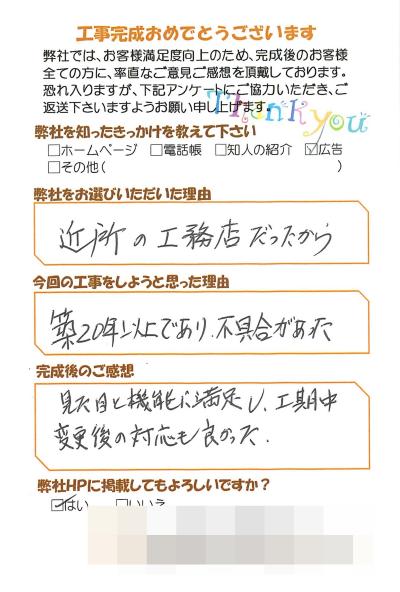 工事完成おめでとうございます
弊社では、お客様満足度向上のため、完成後のお客様
全ての方に、率直なご意見ご感想を頂戴しております。
恐れ入りますが、下記アンケートにご協力いただき、ご
返送下さいますようお願い申し上げます。
Thank you
弊社を知ったきっかけを教えて下さい
□ホームページ □電話帳 □知人の紹介 ☑広告
□その他( )
弊社をお選びいただいた理由
近所の工務店だったから
今回の工事をしようと思った理由
築20年以上であり、不具合があった
完成後のご感想
見た目と機能に満足し、工期中
変更後の対応も良かった.
弊社HPに掲載してもよろしいですか?
☑はい □いいえ